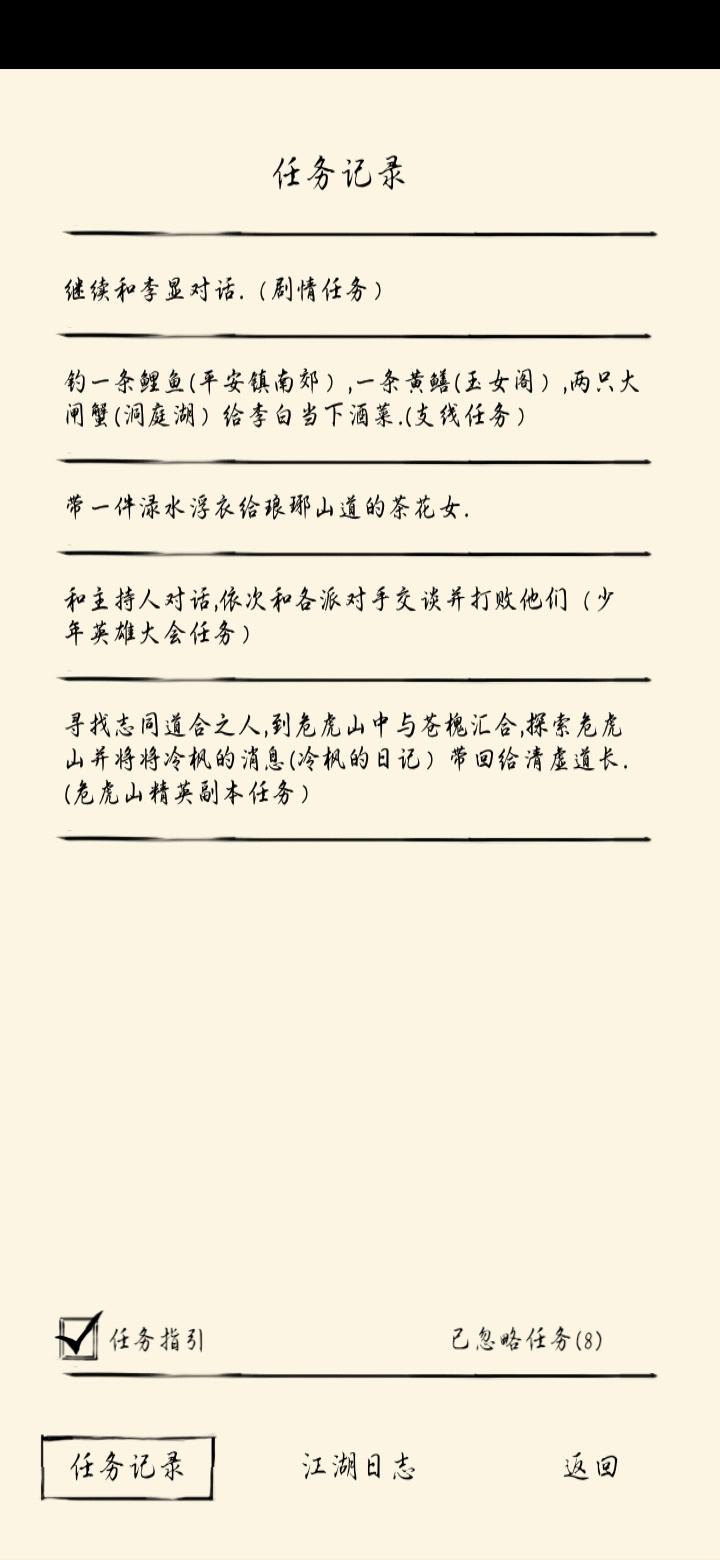 任务记录
继续和李显对话.（剧情任务）
钓一条鲤鱼(平安镇南郊）,一条黄鳝(玉女阁）,两只大
闸蟹(洞庭湖）给李白当下酒菜.(支线任务）
带一件渌水浮衣给琅琊山道的茶花女.
和主持人对话,依次和各派对手交谈并打败他们（少
年英雄大会任务）
寻找志同道合之人,到危虎山中与苍槐汇合,探索危虎
山并将将冷枫的消息(冷枫的日记）带回给清虚道长.
(危虎山精英副本任务）
任务指引
已忽略任务(8)
任务记录
江湖日志
返回